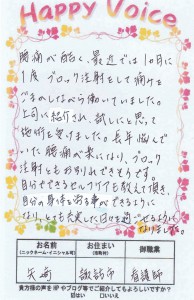 Happy Voice
腰痛が酷く、最近では10日に
1度ブロック注射をして痛みを
ごまかしながら働いていました。
上司に紹介され、試しにと思って
施術を受けました。長年悩んで
いた腰痛が楽になり、ブロック
注射ともお別れできそうです。
自分でできるセルフケアも教えて頂き、
自分の身体を労る事ができるように
なり、とても充実した日々を過ごせるように
なりました。
お名前
(ニックネーム・イニシャル可)
お住まい
(市町村)
御職業
矢崎
諏訪市
看護師
貴方様の声をHPやブログ等でご紹介してもよろしいですか?
はい いいえ